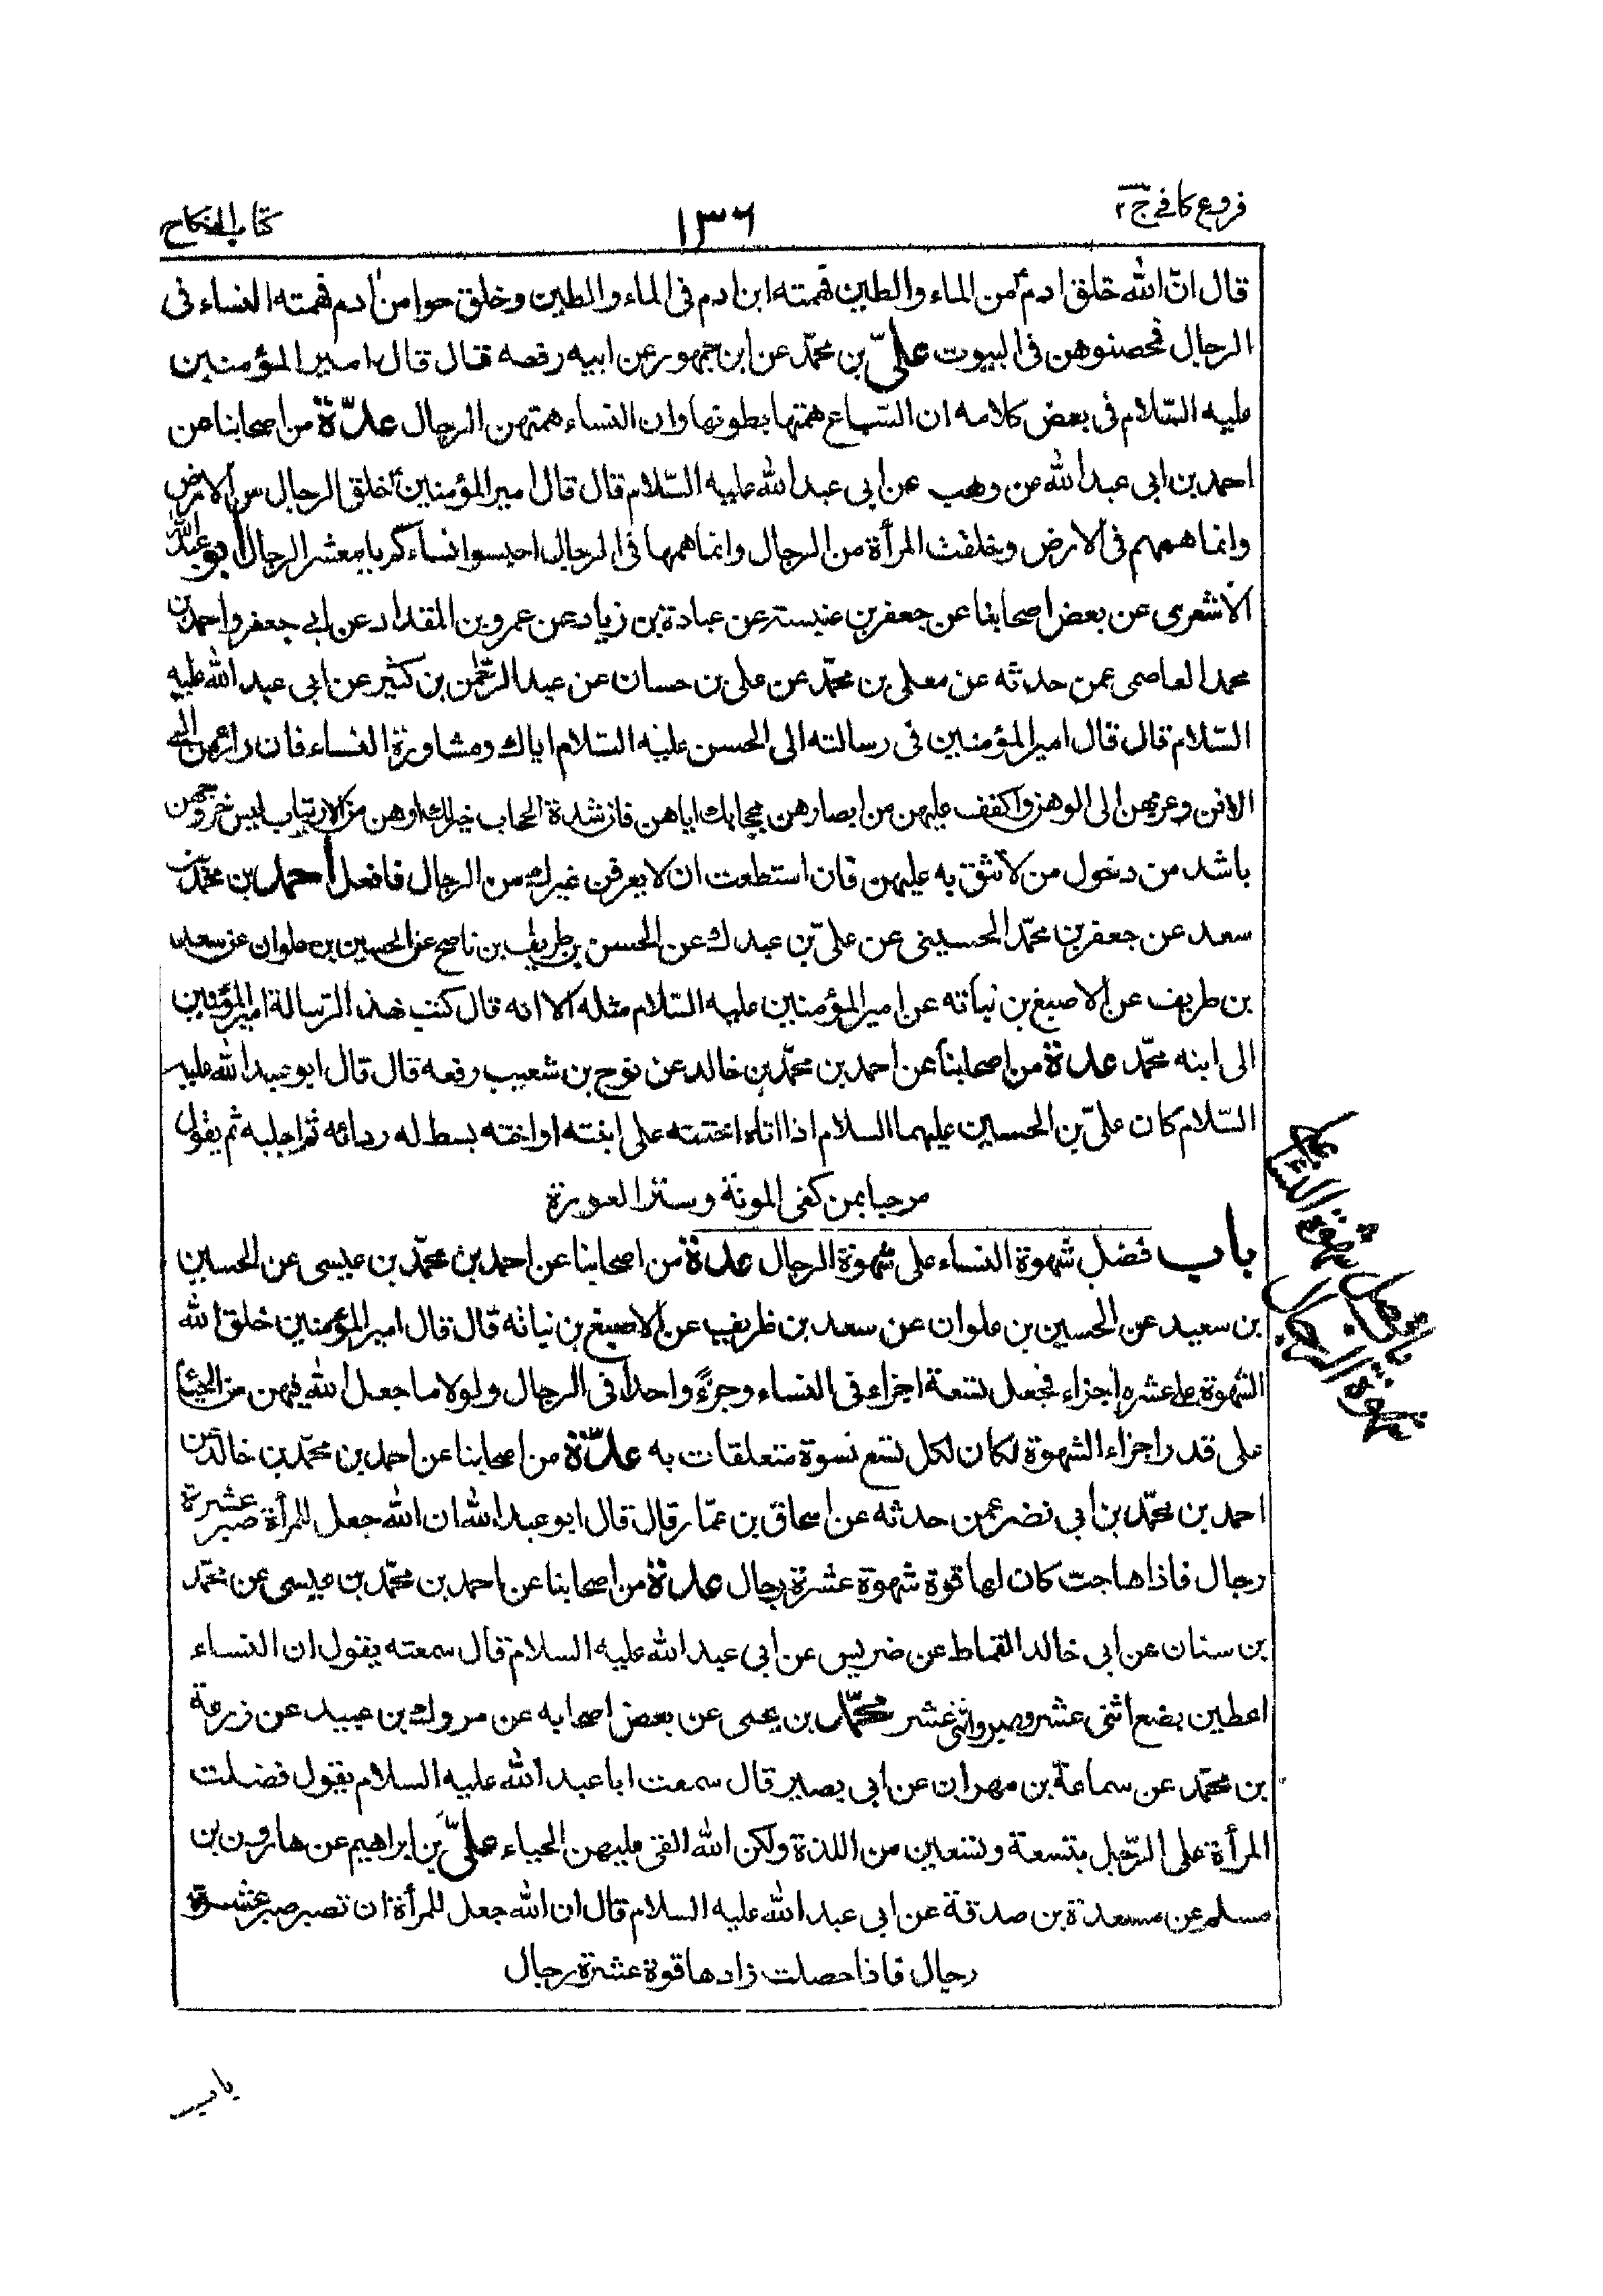 فروع كافي ج ٢
١٣٦
كتاب النكاح
قال انّ الله خلق ادم من الماء والطين فهمته ابن ادم فى الماء والطين وخلق حوا من ادم فهمته النساء فى
الرجال فحصنوهن فى البيوت علىّ بن محمّد عن ابن جمهور عن ابيه رفعه قال قال امير المؤمنين
عليه السّلام فى بعض كلامه ان السّباع همّتها بطونها وان النساء همتهن الرجال عدّة من اصحابنا عن
احمد بن ابى عبد الله عن وهب عن ابى عبد الله عليه السّلام قال قال امير المؤمنينؑ خلق الرجال من الارض
وانما همهم فى الارض وخلقت المرأة من الرجال وانما همها فى الرجال احبسوا نساءكم يا معشر الرجال ابو عبد الله
الاشعرى عن بعض اصحابنا عن جعفر بن عنبسة عن عبادة بن زياد عن عمرو بن المقداد عن ابى جعفر واحمد بن
محمد العاصمى عمن حدثه عن معلى بن محمّد عن على بن حسان عن عبد الرحمٰن بن كثير عن ابى عبد الله عليه
السّلام قال قال امير المؤمنين فى رسالته الى الحسن عليه السّلام اياك ومشاورة النساء فان رائهن الى
الافن وعزمهن الى الوهن واكفف عليهن من ابصارهن بحجابك اياهن فان شدة الحجاب خير لك ولهن من الارتياب ليس خروجهن
باشد من دخول من لا تثق به عليهن فان استطعت ان لا يعرفن غيرك من الرجال فافعل احمد بن محمّد بن
سعد عن جعفر بن محمّد الحسينى عن علىّ بن عبدك عن الحسن بن ظريف بن ناصح عن الحسين بن علوان عن سعد
بن طريف عن الاصبغ بن نباتة عن امير المؤمنين عليه السّلام مثله الا انه قال كتب هذه الرّسالة امير المؤمنين
الى ابنه محمّد عدة من اصحابنا عن احمد بن محمّد بن خالد عن نوح بن شعيب رفعه قال قال ابو عبد الله عليه
السّلام كان علىّ بن الحسين عليهما السلام اذا اتاه اختنه على ابنته او اخته بسط له ردائه ثم اجلسه ثم يقول
مرحبا بمن كفى المونة وستر العورة
باب فضل شهوة النساء على شهوة الرجال عدة من اصحابنا عن احمد بن محمّد بن عيسى عن الحسين
بن سعيد عن الحسين بن علوان عن سعد بن ظريف عن الاصبغ بن نباتة قال قال امير المؤمنين خلق الله
الشهوة على عشرة اجزاء فجعل تسعة اجزاء فى النساء وجزءً واحدا فى الرجال ولولا ما جعل الله فيهن من الحياء
على قدر اجزاء الشهوة لكان لكل تسع نسوة متعلقات به عدّة من اصحابنا عن احمد بن محمّد بن خالد عن
احمد بن محمّد بن ابى نصر عمن حدثه عن اسحاق بن عمّار قال قال ابو عبد الله ان الله جعل للمرأة صبر عشرة
رجال فاذا هاجت كان لها قوة شهوة عشرة رجال عدة من اصحابنا عن احمد بن محمّد بن عيسى عن محمّد
بن سنان عن ابى خالد القماط عن ضريس عن ابى عبد الله عليه السلام قال سمعته يقول ان النساء
اعطين بضع اثنى عشر وصبر اثنى عشر محمّد بن يحيى عن بعض اصحابه عن مروك بن عبيد عن زرعة
بن محمّد عن سماعة بن مهران عن ابى بصير قال سمعت ابا عبد الله عليه السلام يقول فضلت
المرأة على الرّجل بتسعة وتسعين من اللذة ولكن الله القى عليهن الحياء علىّ بن ابراهيم عن هارون بن
مسلم عن مسعدة بن صدقة عن ابى عبد الله عليه السلام قال ان الله جعل للمرأة ان تصبر صبر عشرة
رجال فاذا حصلت زادها قوة عشرة رجال
باب فضل
شهوة النساء على
شهوة الرجال
باب